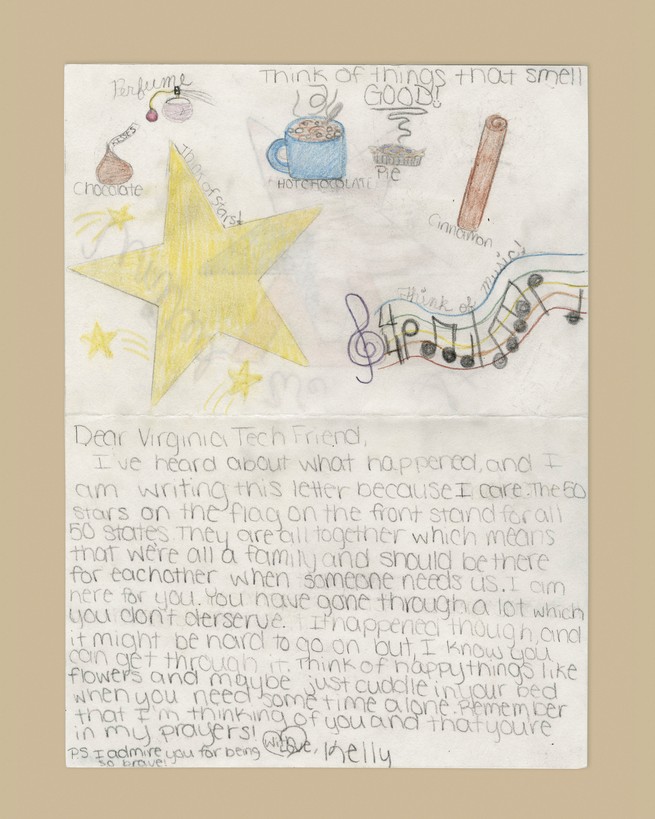 Perfume
Think of things that smell
GOOD!
KISSES
Chocolate
HOT CHOCOLATE
Pie
Cinnamon
Think of stars!
Think of music!
Dear Virginia Tech Friend,
I've heard about what happened, and I
am writing this letter because I care. The 50
stars on the flag on the front stand for all
50 states. They are all together which means
that we're all a family and should be there
for eachother when someone needs us. I am
here for you. You have gone through a lot which
you don't derserve. It happened though, and
it might be hard to go on but I know you
can get through it. Think of happy things like
flowers and maybe just cuddle in your bed
when you need some time alone. Remember
that I'm thinking of you and that you're
in my prayers!
With Love, Kelly
P.S. I admire you for being
so brave!